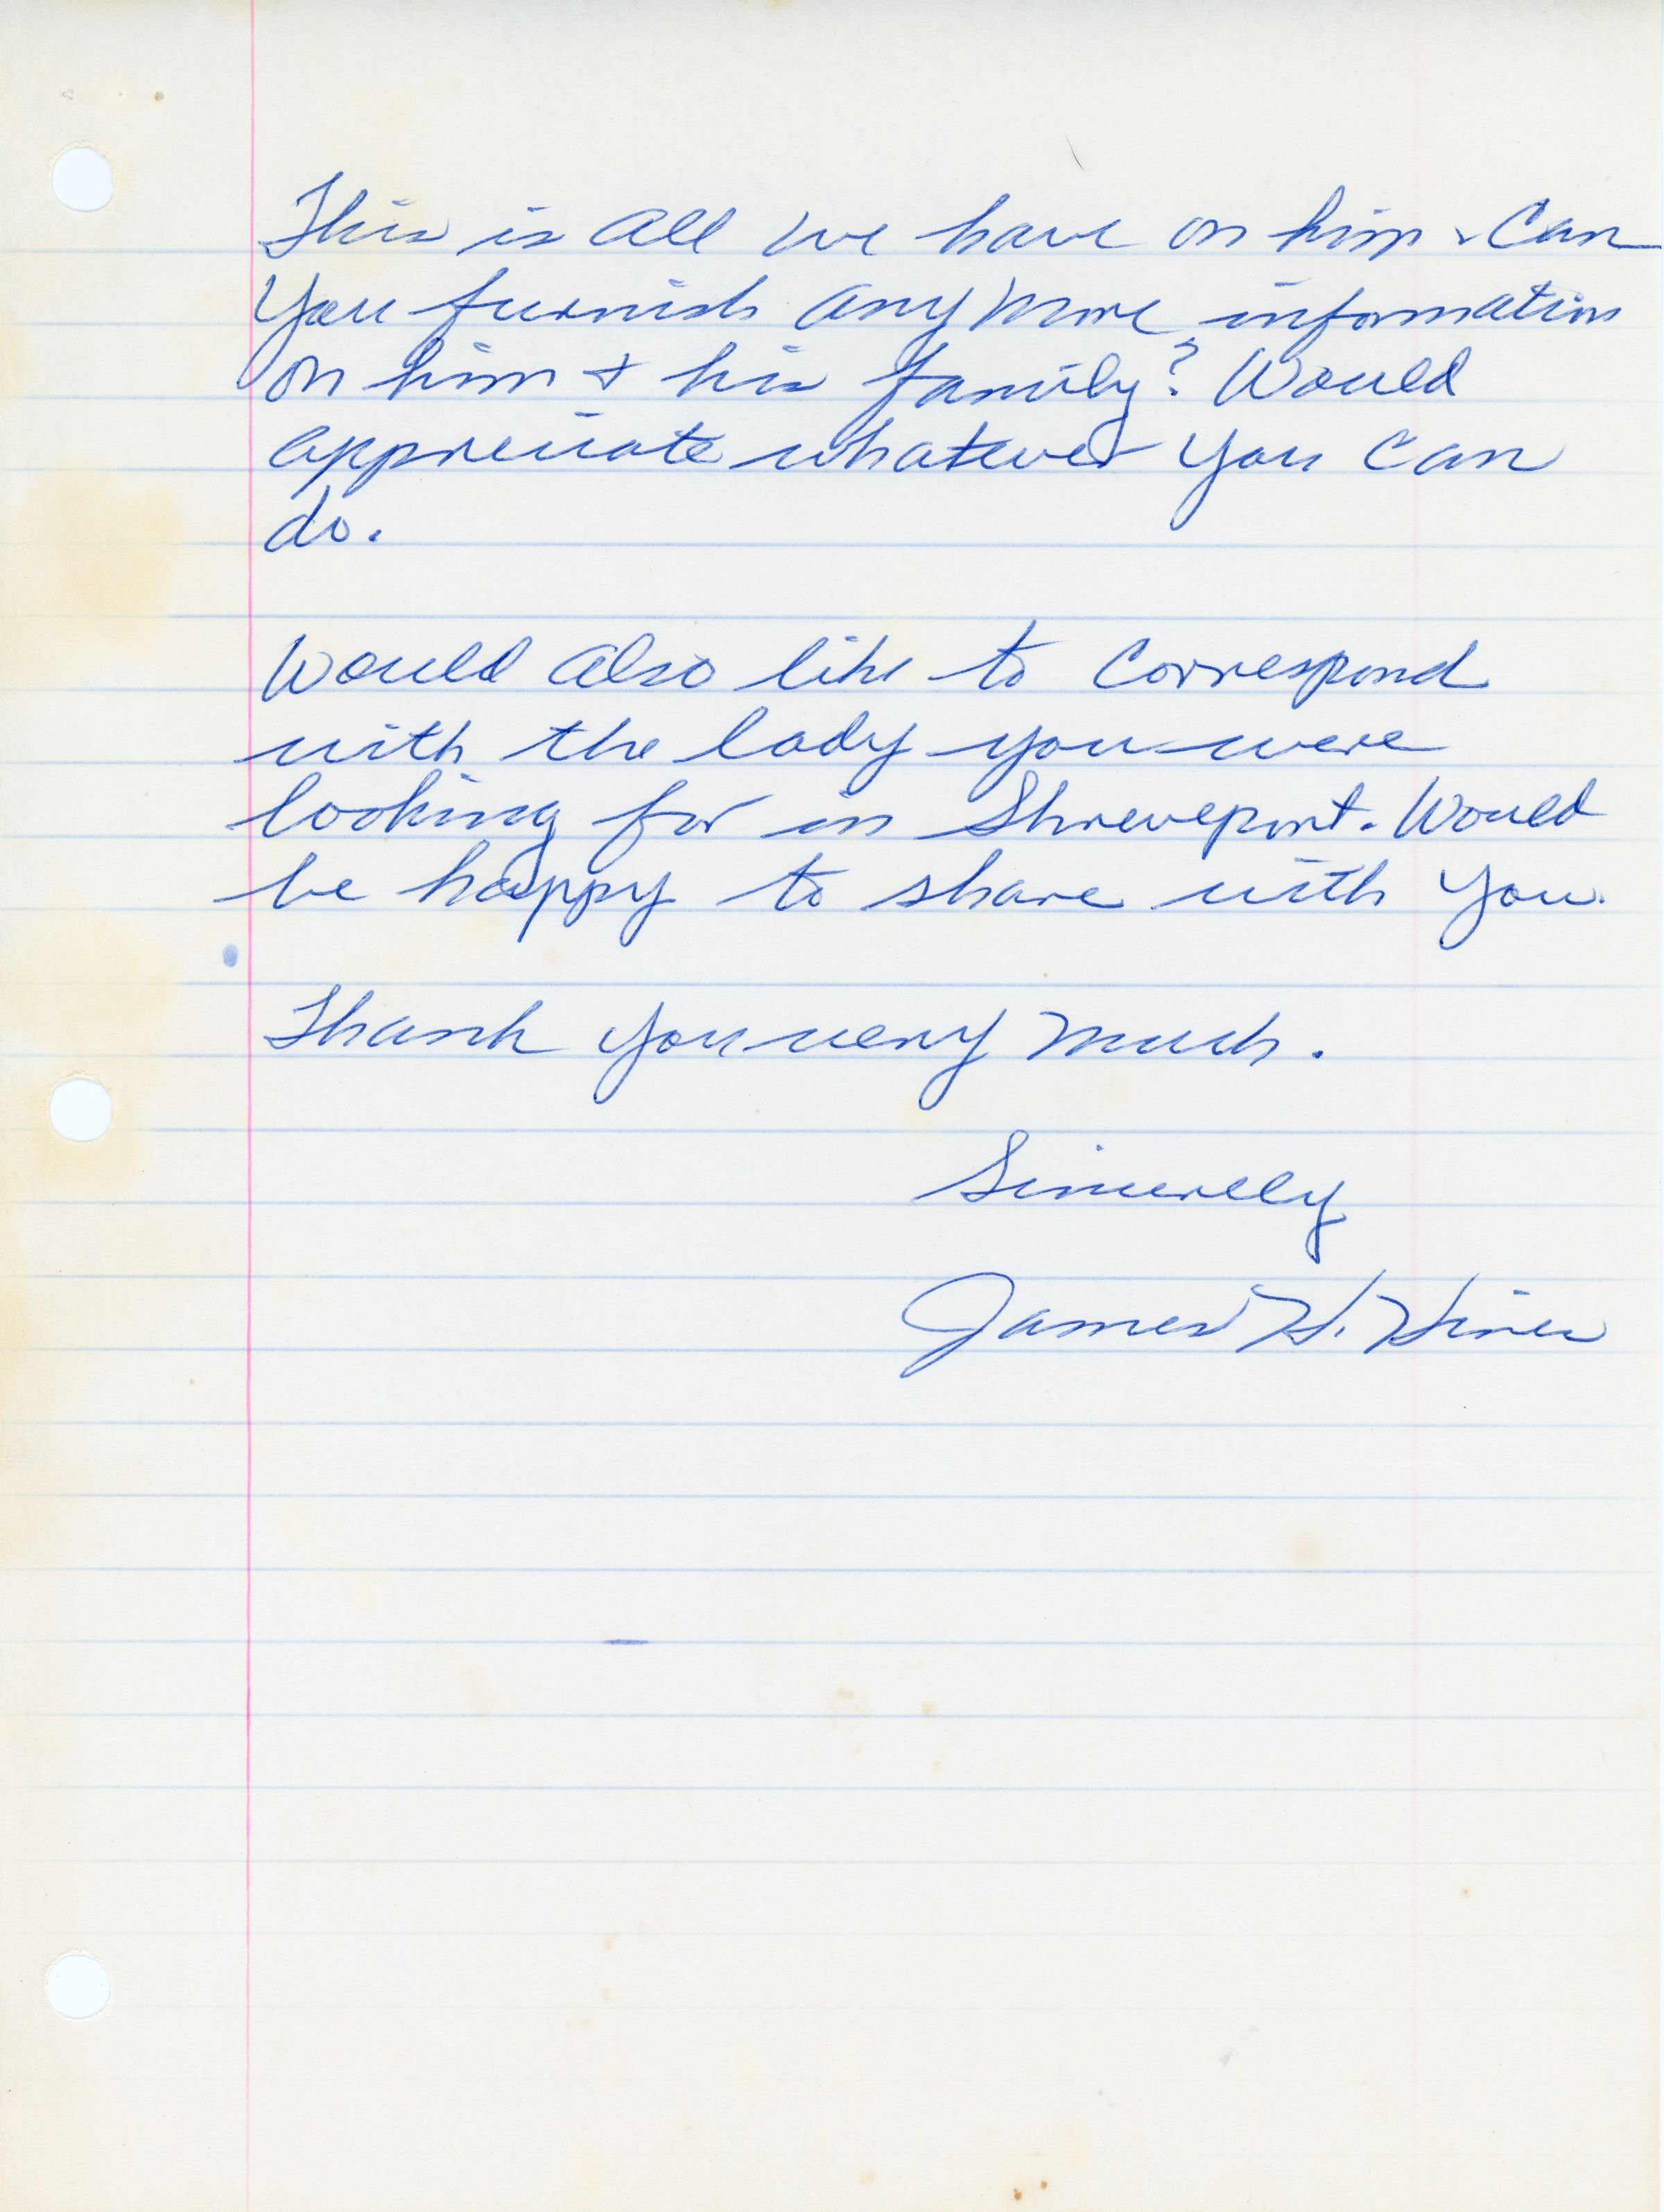 This is all we have on him. Can
you furnish any more information
on him + his family? Would
appreciate whatever you can
do.
Would also like to correspond
with the lady you were
looking for in Shreveport. Would
be happy to share with you.
Thank you very much.
Sincerely
James H. Hines